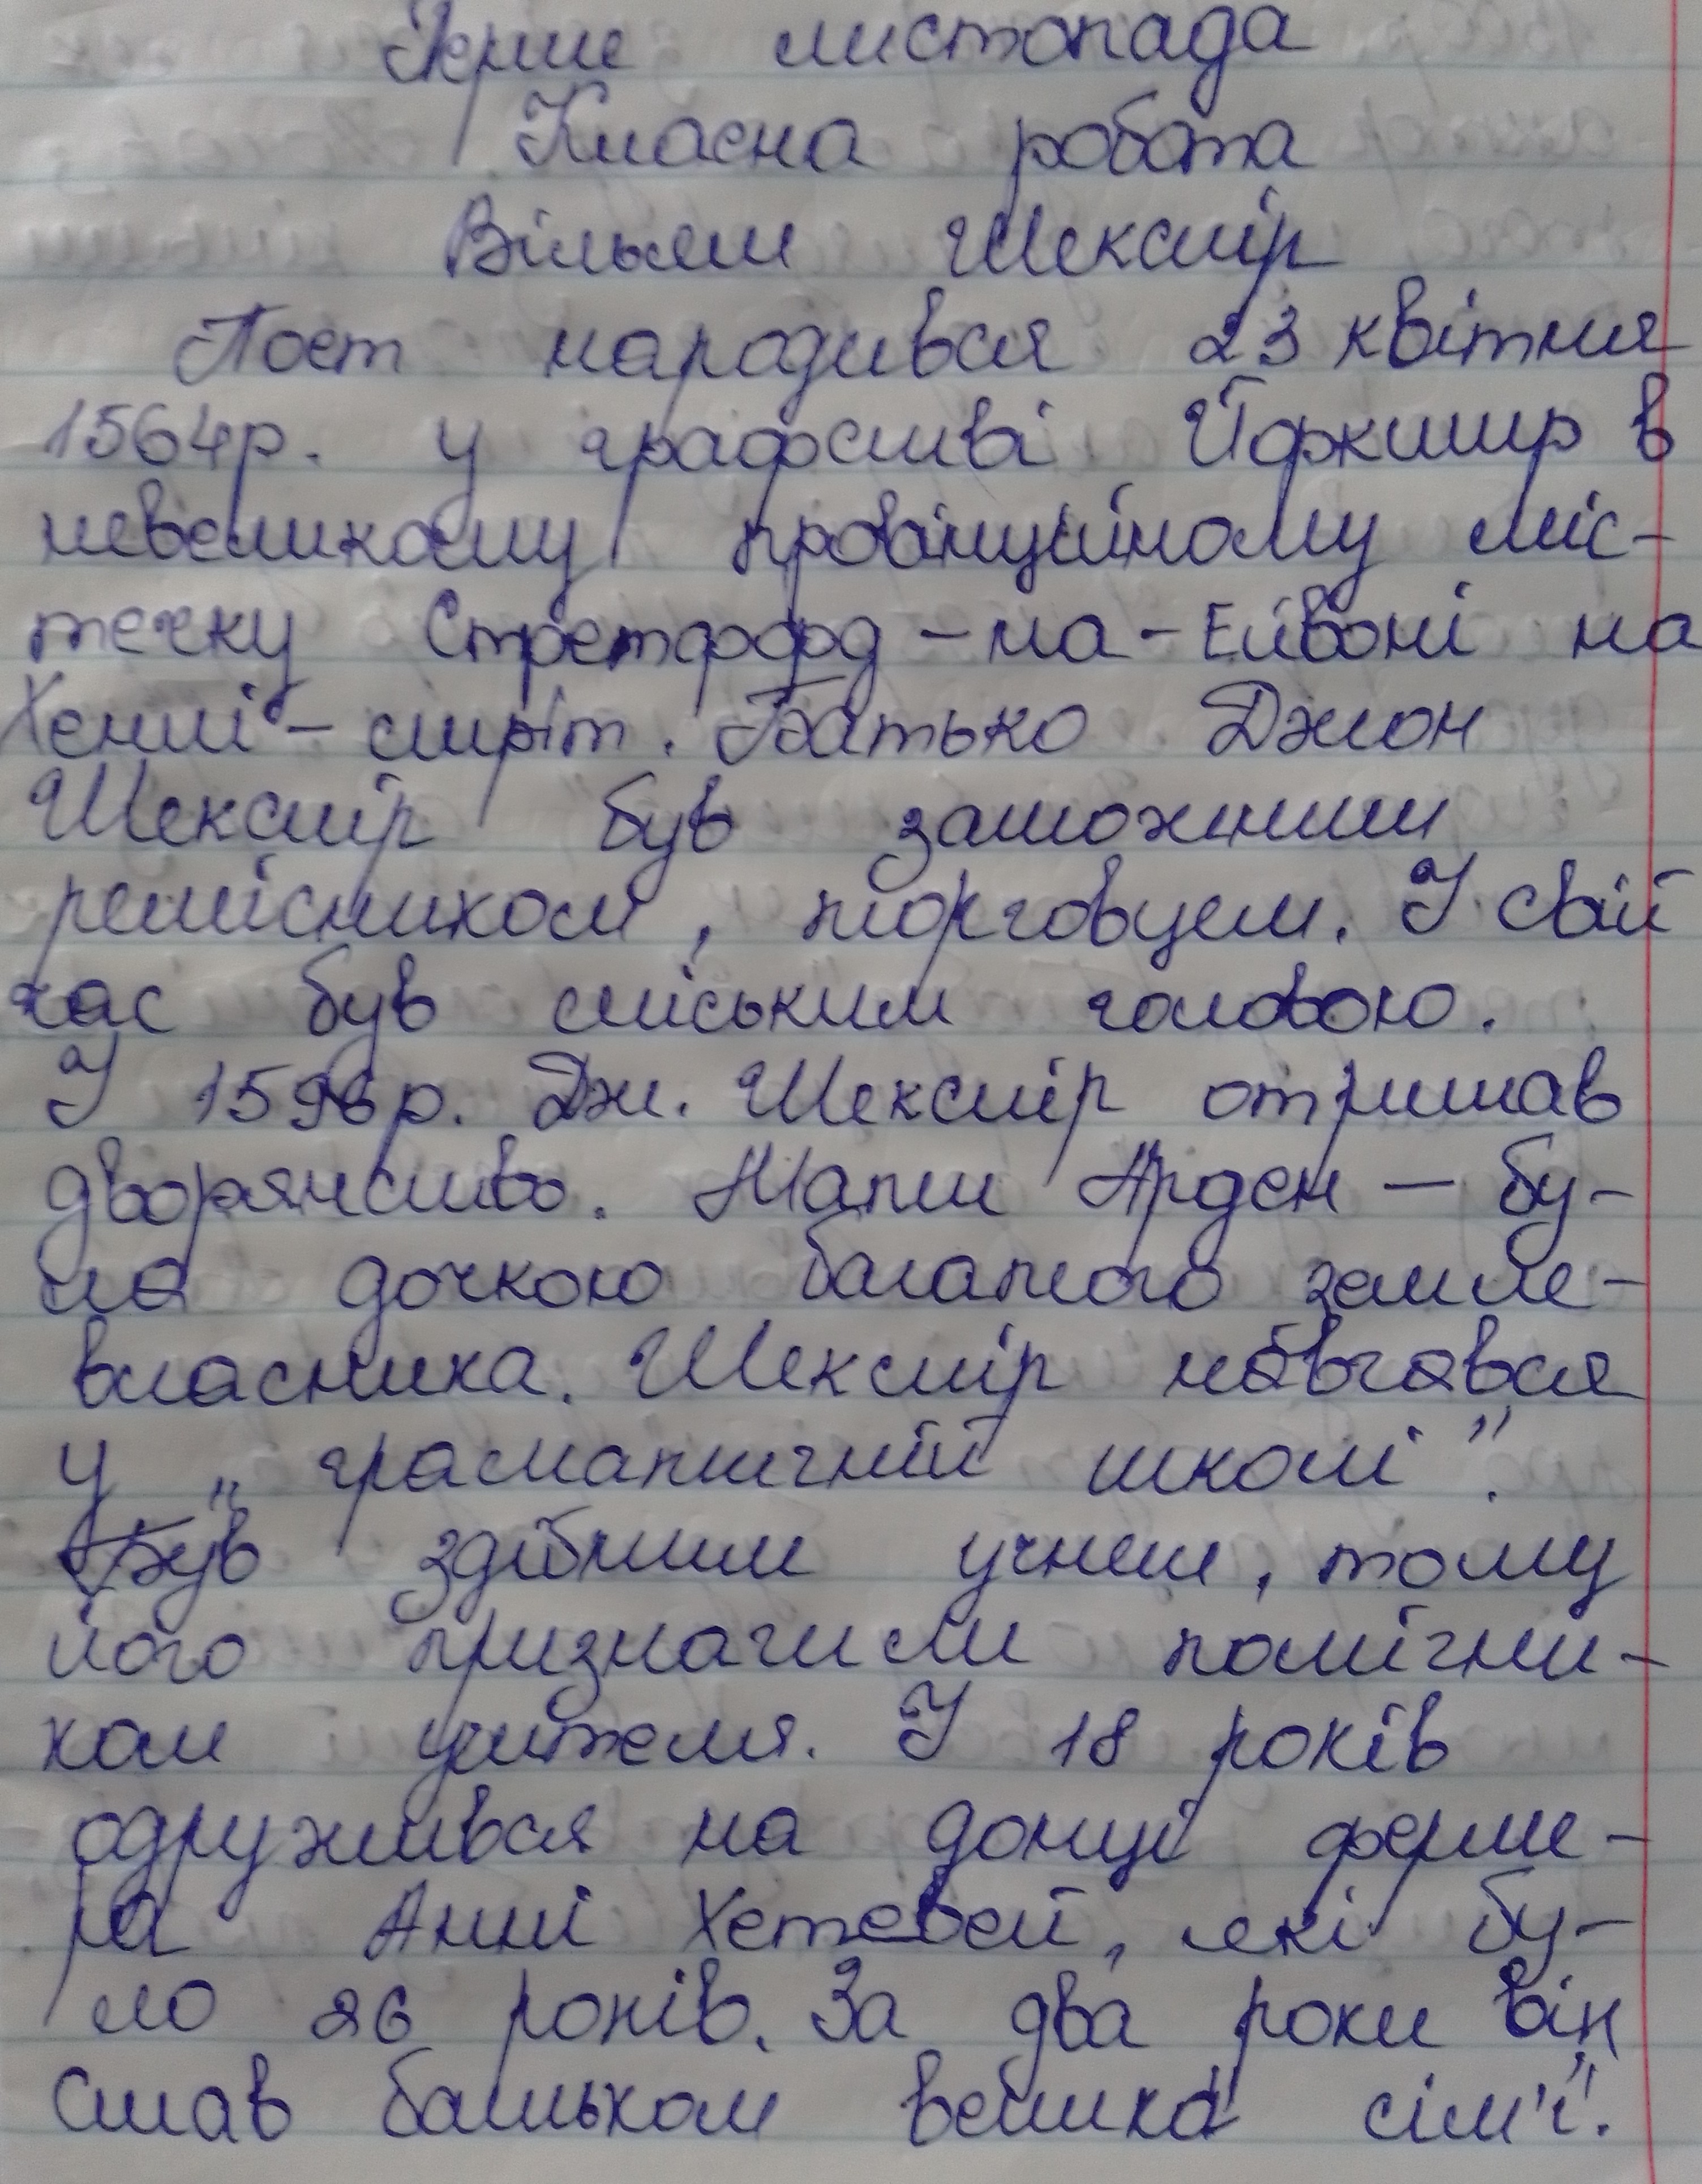 Перше листопада
Класна робота
Вільям Шекспір
Поет народився 23 квітня
1564р. у графстві Йоркшир в
невеликому провінційному міс-
течку Стретфорд-на-Ейвоні на
Хенлі-стріт. Батько Джон
Шекспір був заможним
ремісником, торговцем. У свій
час був міським головою.
У 1596р. Дж. Шекспір отримав
дворянство. Мати Арден — бу-
ла дочкою багатого земле-
власника. Шекспір навчався
у „граматичній школі".
Був здібним учнем, тому
його призначили помічни-
ком учителя. У 18 років
одружився на донці ферме-
ра Анні Хетевей, якій бу-
ло 26 років. За два роки він
став батьком великої сім'ї.